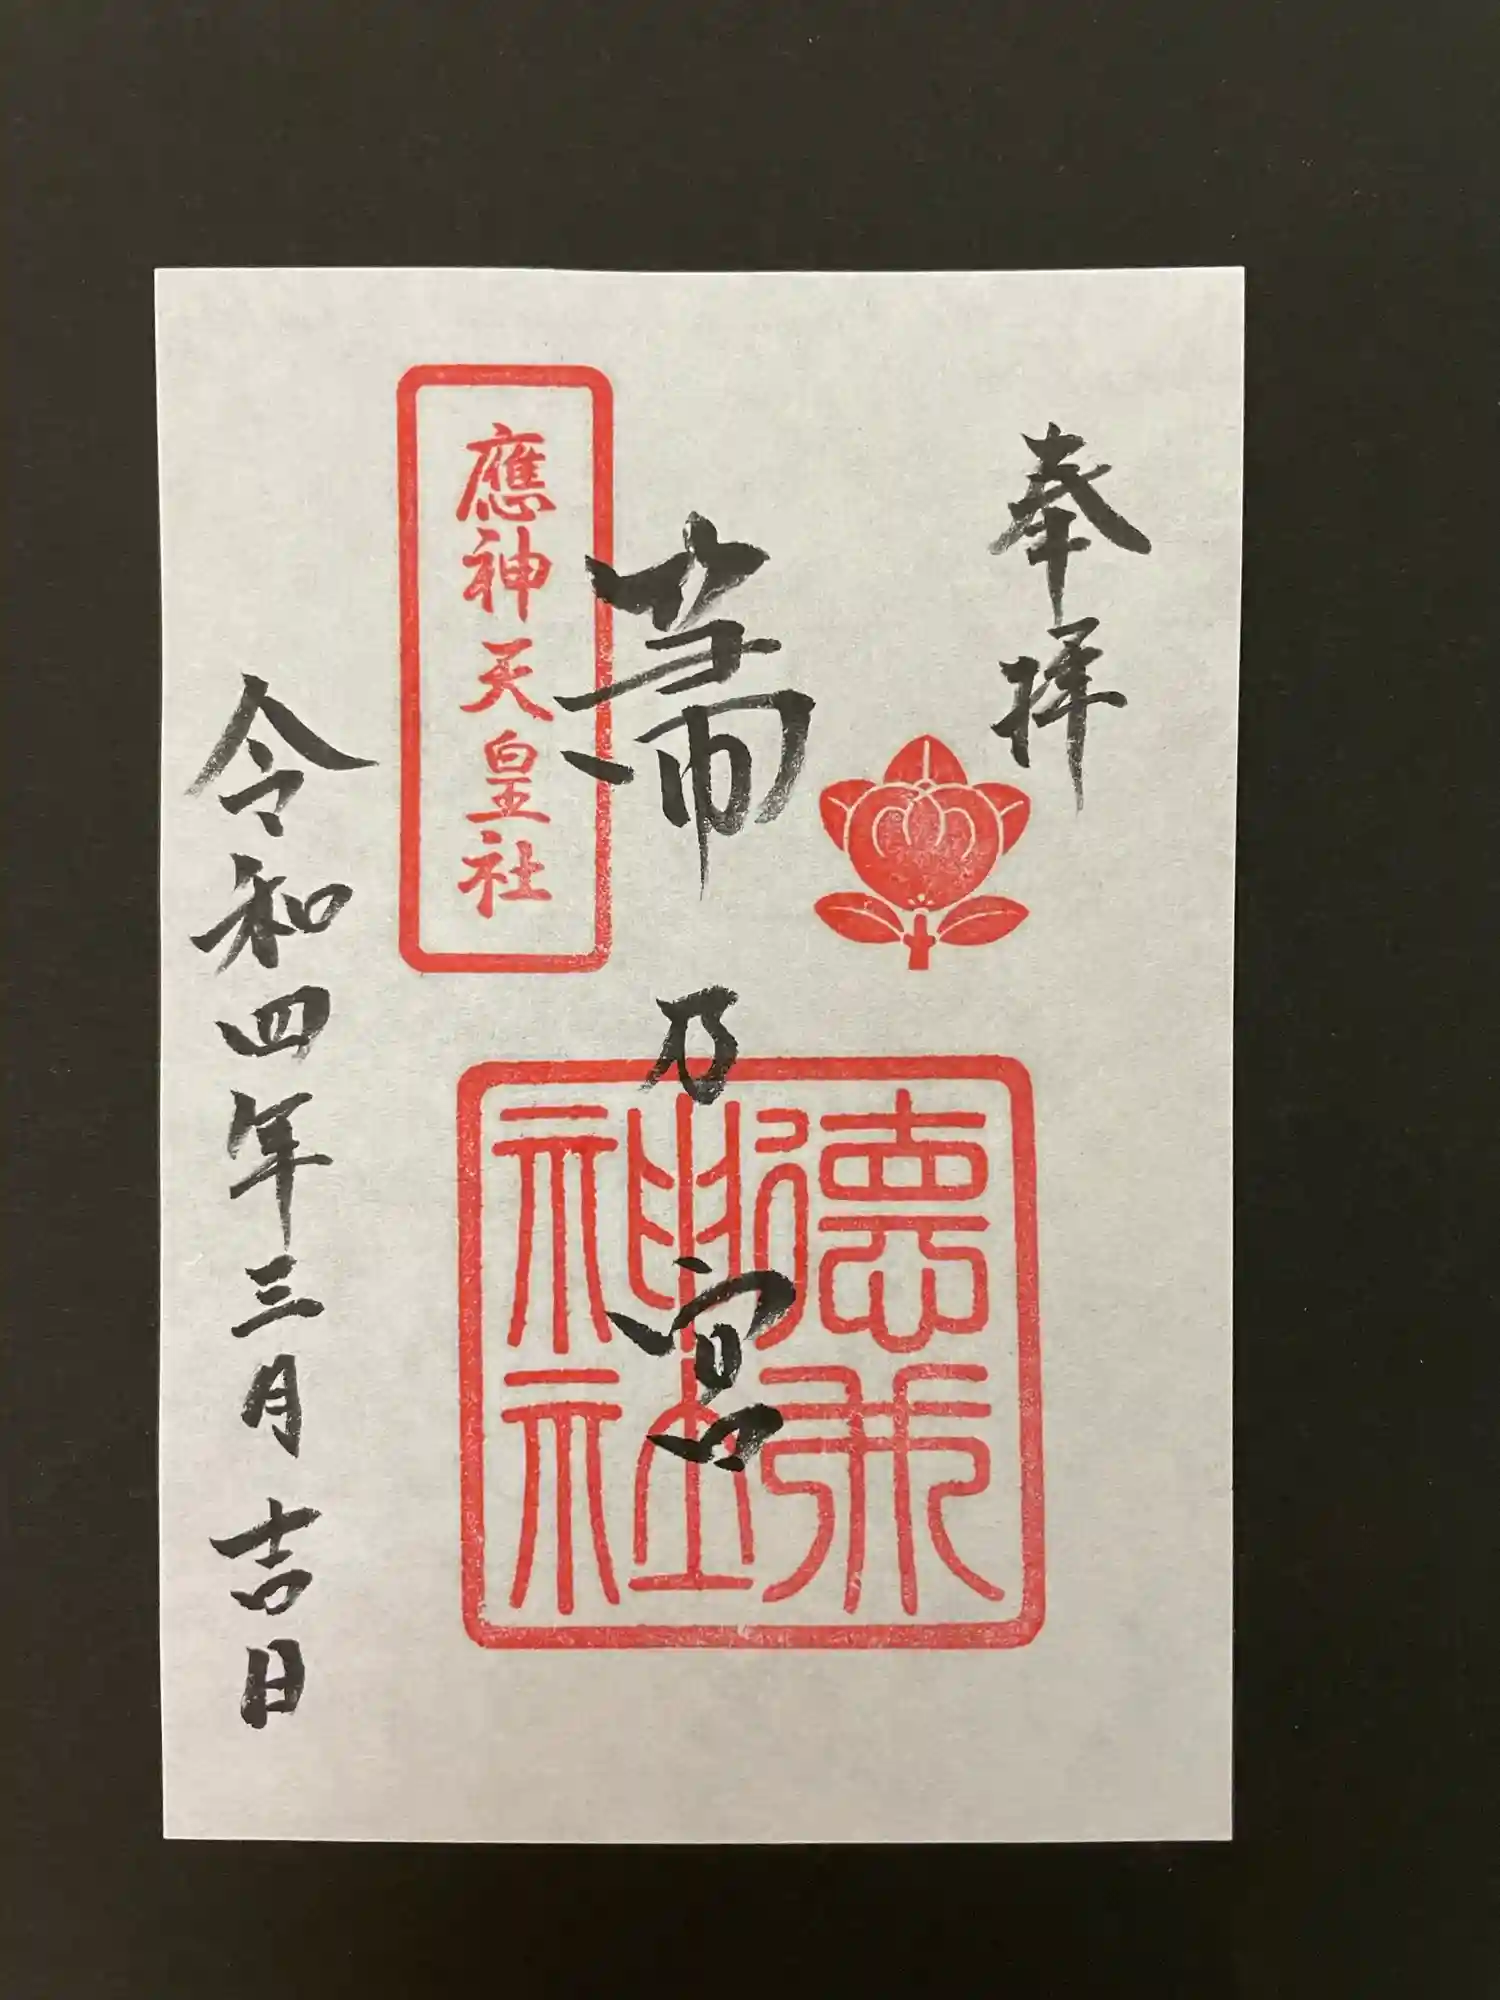 奉拝
帶乃宮
應神天皇社
神社
令和四年三月吉日